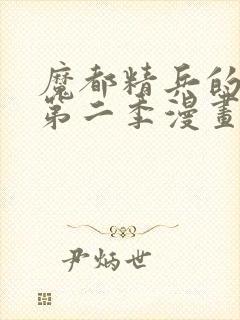 魔都精兵的
第二季漫畫
尹炳世